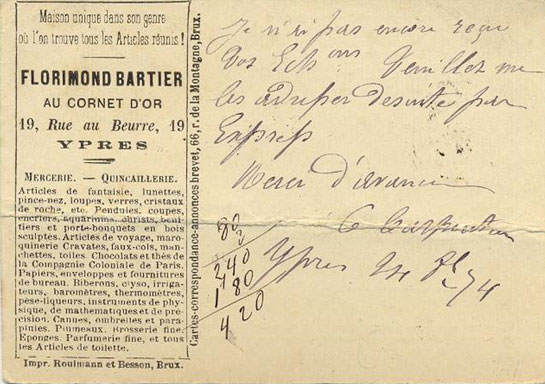 Maison unique dans son genre
où l'on trouve tous les Articles réunis!
FLORIMOND BARTIER
AU CORNET D'OR
19, Rue au Beurre, 19
YPRES
MERCERIE. — QUINCAILLERIE.
Articles de fantaisie, lunettes,
pince-nez, loupes, verres, cristaux
de roche, etc. Pendules, coupes,
encriers, aquariums, christs, béni-
tiers et porte-bouquets en bois
sculptés. Articles de voyage, maro-
quinerie Cravates, faux-cols, man-
chettes, toiles. Chocolats et thés de
la Compagnie Coloniale de Paris.
Papiers, enveloppes et fournitures
de bureau. Biberons, clyso, irriga-
teurs, baromètres, thermomètres,
pèse-liqueurs, instruments de phy-
sique, de mathématiques et de pré-
cision. Cannes, ombrelles et para-
pluies. Plumeaux. Brosserie fine.
Eponges. Parfumerie fine, et tous
les Articles de toilette.
Impr. Roulmann et Besson, Brux.
Cartes-correspondance-annonces brevet, 66, r. de la Montagne, Brux.
Je n'ai pas encore reçu
Vos Echons Veuillez me
les adresser de suite par
Express
Merci d'avance
Ypres 24 74
80
3
240
180
420